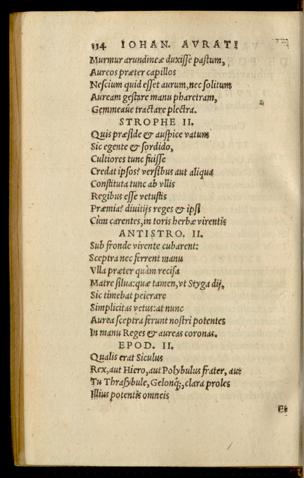 334 IOHAN. AVRATI
Murmur arundineæ duxisse pastum,
Aureos præter capillos
Nescium quid esset aurum, nec solitum
Auream gestare manu pharetram,
Gemmeaúe tractare plectra.
STROPHE II.
Quis præside & auspice vatum
Sic egente & sordido,
Cultiores tunc fuisse
Credat ipsos? versibus aut aliqua
Constituta tunc ab vllis
Regibus esse vetustis
Præmia? diuitijs reges & ipsi
Cùm carentes, in toris herbæ virentis
ANTISTRO. II.
Sub fronde vivente cubarent:
Sceptra nec ferrent manu
Vlla præter quàm recisa
Matre silua: quæ tamen, vt Styga dij,
Sic timebat peierare
Simplicitas vetus: at nunc
Aurea sceptra ferunt nostri potentes
In manu Reges & aureas coronas.
EPOD. II.
Qualis erat Siculus
Rex, aut Hiero, aut Polybulus frater, aut
Tu Thrasybule, Gelonq́;, clara proles
Illius potentis omneis
Et